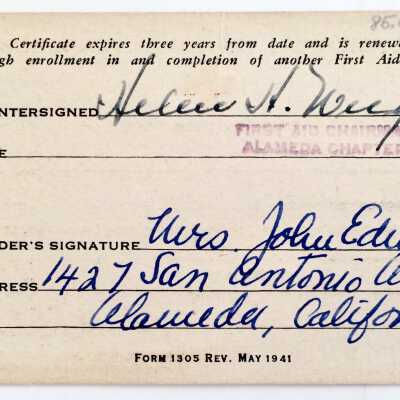 85.
Certificate expires three years from date and is renew
gh enrollment in and completion of another First Aid
NTERSIGNED Helen H.
FIRST AID CHAIRMAN
ALAMEDA CHAPTER
E
DER'S SIGNATURE Mrs. John Edw
RESS 1427 San Antonio A
Alameda, Califor
FORM 1305 REV. MAY 1941